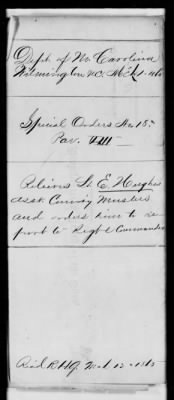 Dept of No Carolina
Wilmington N.C. Mch 1
Special Orders No 18
Par. VIII
Relieves Lt E. Hughes
Asst Commy Musters
and orders him to re
port to Regtl Commander
Recd Mch 12 1865